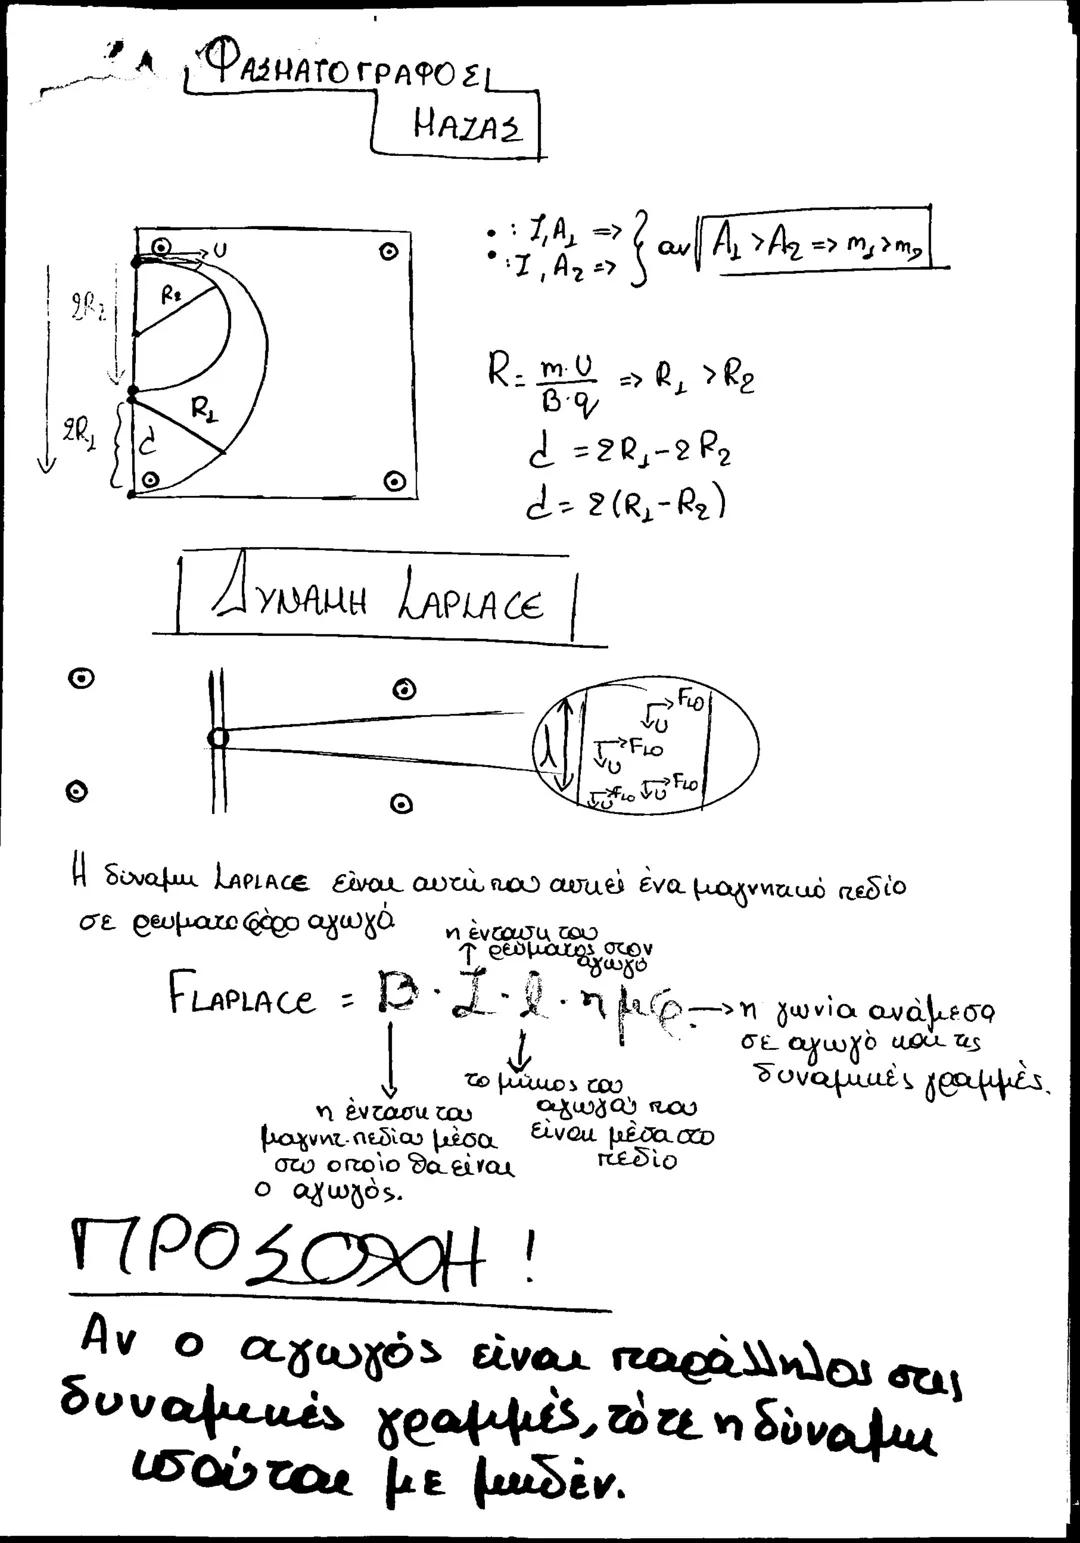 ΦΑΣΜΑΤΟΓΡΑΦΟΣ
ΜΑΖΑΣ
• : Z, A₁ =>
• : Z, A₂ =>
αν A₁ > A₂ => m₁ > m₂
U
R₂
2R₂
R₁
2R₁
d
R = m·U / B·q => R₁ > R₂
d = 2R₁ - 2R₂
d = 2(R₁ - R₂)
ΔΥΝΑΜΗ LAPLACE
λ
FLO
U
FLO
U
FLO
U
FLO
U
Η δύναμη LAPLACE είναι αυτή που ασκεί ένα μαγνητικό πεδίο
σε ρευματοφόρο αγωγό
η ένταση του
ρεύματος στον
αγωγό
FLAPLACE = B · I · l · ημφ → η γωνία ανάμεσα
σε αγωγό και τις
δυναμικές γραμμές.
το μήκος του
αγωγού που
είναι μέσα στο
πεδίο
η ένταση του
μαγνητ. πεδίου μέσα
στο οποίο θα είναι
ο αγωγός.
ΠΡΟΣΟΧΗ!
Αν ο αγωγός είναι παράλληλος στις
δυναμικές γραμμές, τότε η δύναμη
ισούται με μηδέν.